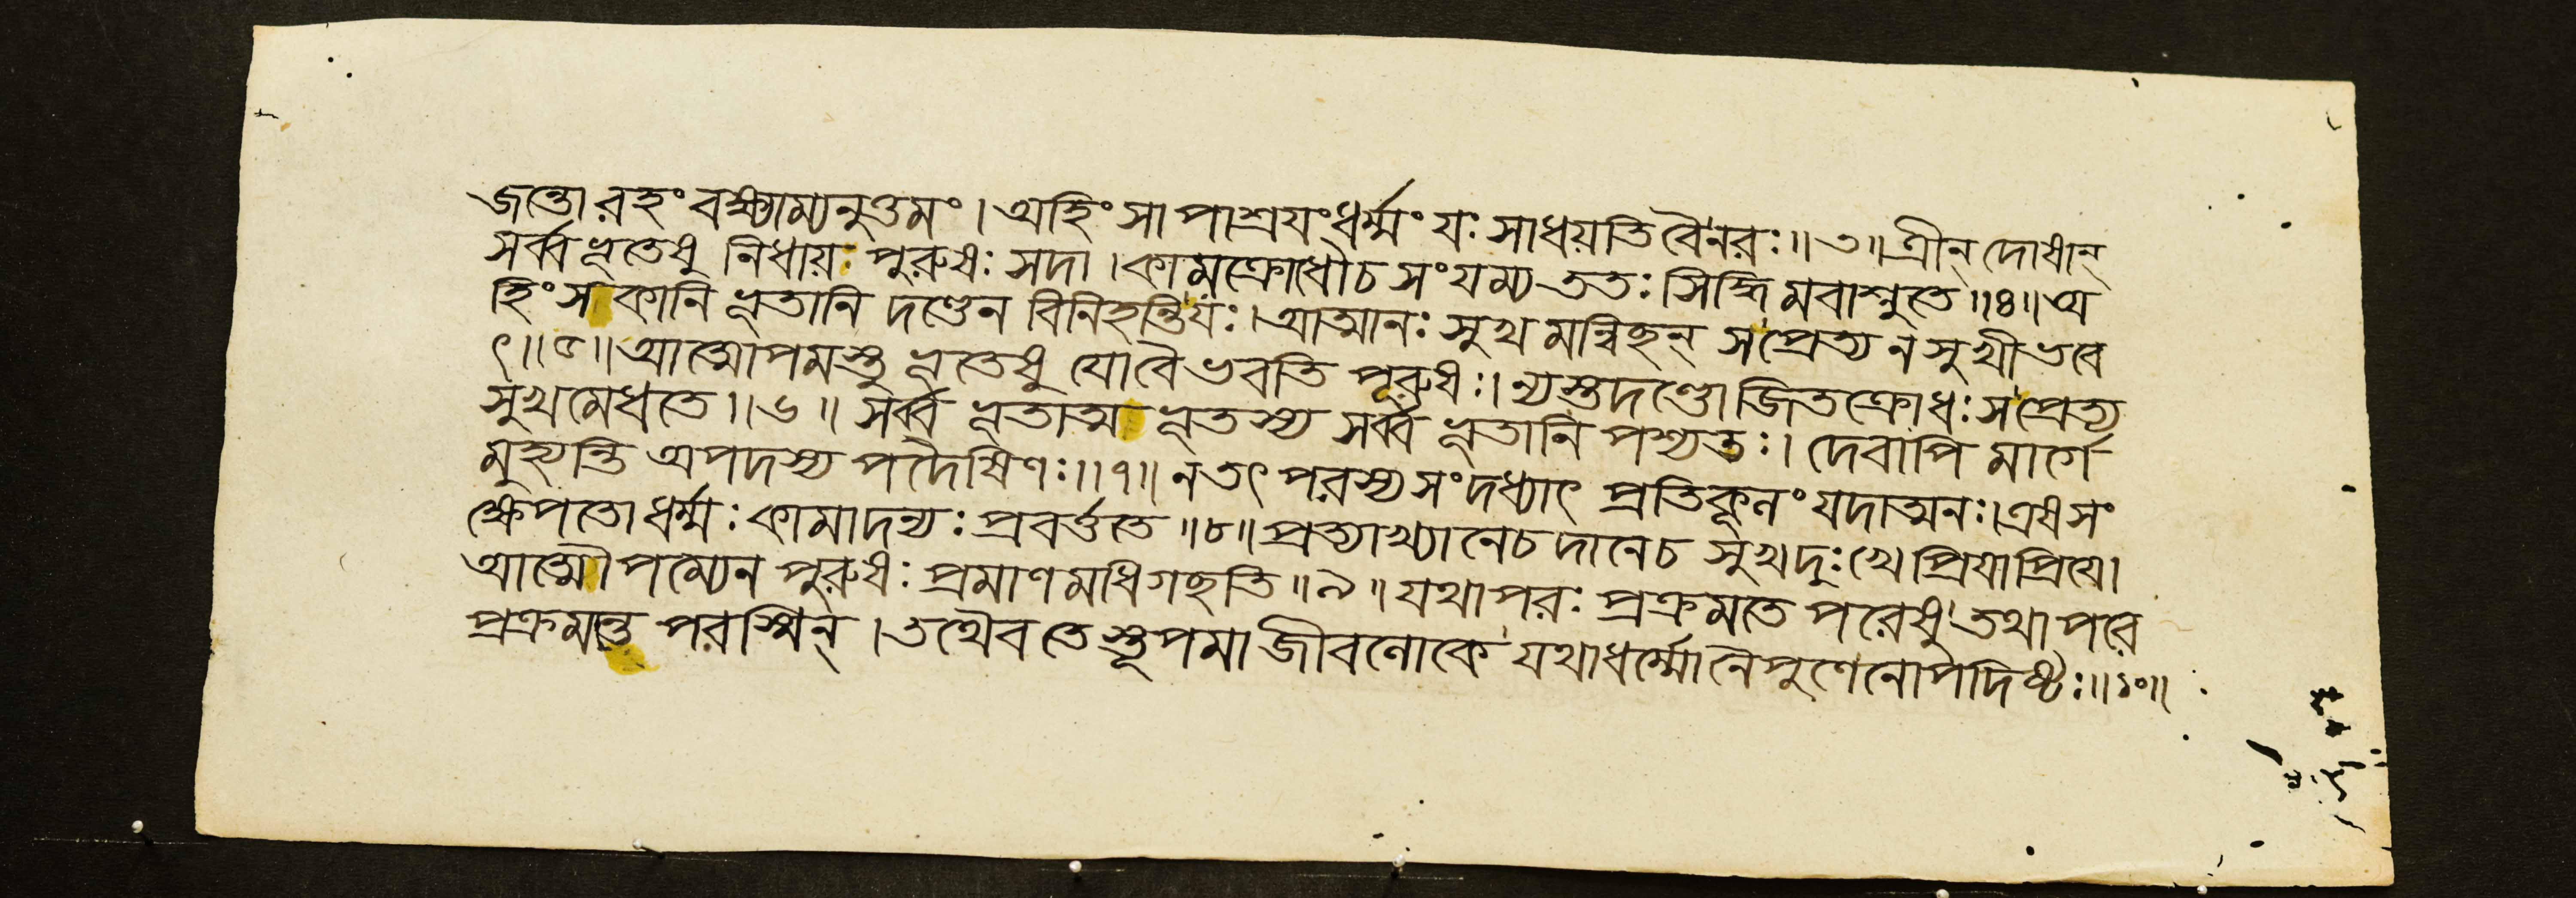 জন্তোরহং বক্ষ্যাম্যনুত্তমং । অহিংসাপাশ্রয়ং ধর্ম্মং যঃ সাধয়তি বৈ নরঃ ॥ ৩ ॥ ত্রীন্ দোষান্
সর্ব্বভূতেষু নিধায় পুরুষঃ সদা । কামক্রোধৌ চ সংযম্য ততঃ সিদ্ধিমবাশ্নুতে ॥ ৪ ॥ অ
হিংসকানি ভূতানি দণ্ডেন বিনিহন্তি যঃ । আত্মনঃ সুখমন্বিছন্ স প্রেত্য ন সুখী ভবে
ৎ ॥ ৫ ॥ আত্মোপমস্তু ভূতেষু যো বৈ ভবতি পূরুষঃ । ন্যস্তদণ্ডো জিতক্রোধঃ স প্রেত্য
সুখমেধতে ॥ ৬ ॥ সর্ব্বভূতাত্মভূতস্য সর্ব্বভূতানি পশ্যতঃ । দেবাপি মার্গে
মুহ্যন্তি অপদস্য পদৈষিণঃ ॥ ৭ ॥ ন তৎ পরস্য সংদধ্যাৎ প্রতিকূলং যদাত্মনঃ । এষ সং
ক্ষেপতো ধর্ম্মঃ কামাদন্যঃ প্রবর্ত্ততে ॥ ৮ ॥ প্রত্যাখ্যানে চ দানে চ সুখদুঃখে প্রিয়াপ্রিয়ে ।
আত্মৌপম্যেন পুরুষঃ প্রমাণমধিগছতি ॥ ৯ ॥ যথা পরঃ প্রক্রমতে পরেষু তথা পরে
প্রক্রমন্তে পরস্মিন্ । তথৈব তেস্তূপমা জীবলোকে যথা ধর্ম্মো নৈপুণেনোপদিষ্টঃ ॥ ১০ ॥